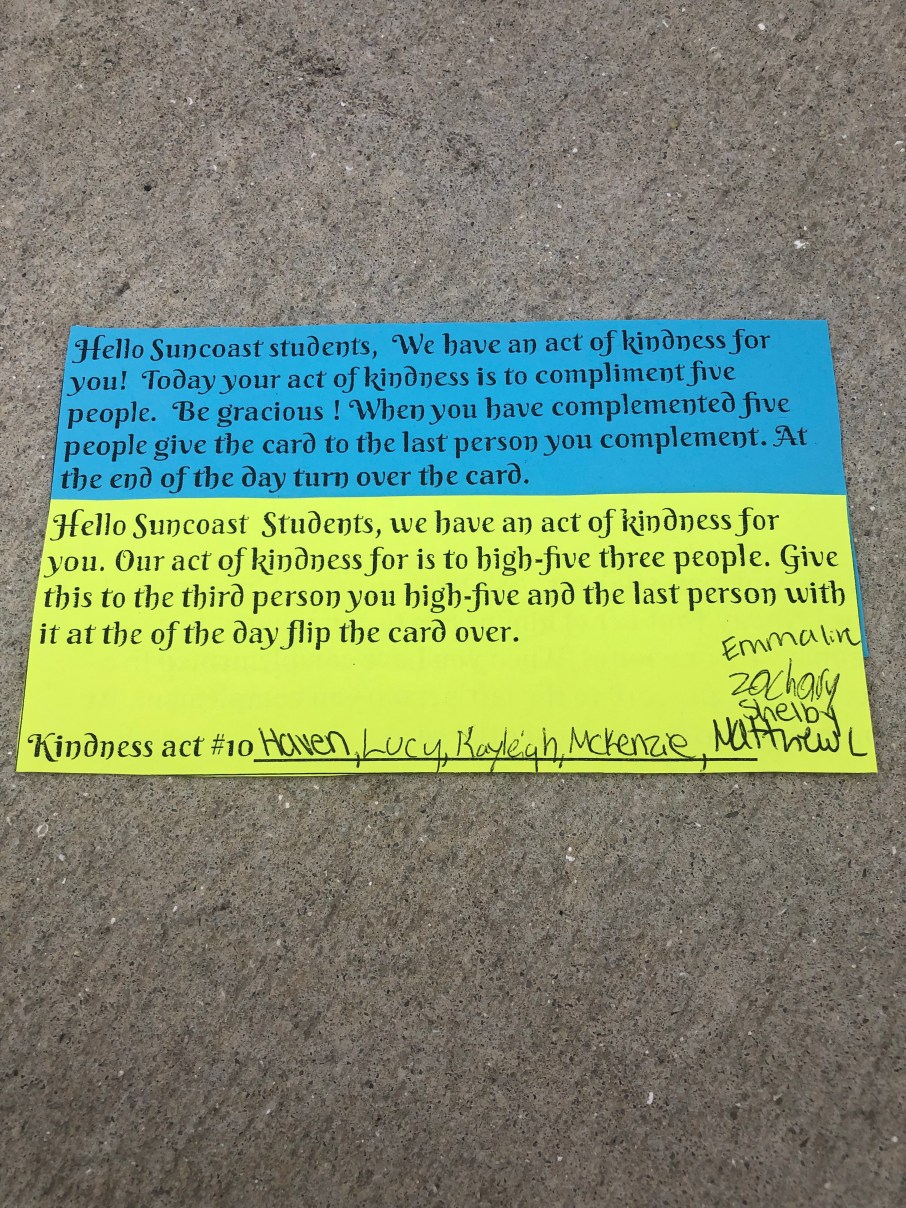 Hello Suncoast students, We have an act of kindness for
you! Today your act of kindness is to compliment five
people. Be gracious ! When you have complemented five
people give the card to the last person you complement. At
the end of the day turn over the card.
Hello Suncoast Students, we have an act of kindness for
you. Our act of kindness for is to high-five three people. Give
this to the third person you high-five and the last person with
it at the of the day flip the card over.
Emmaline
Zachary
Shelby
Kindness act #10 Haven, Lucy, Kayleigh, McKenzie, Matthew L